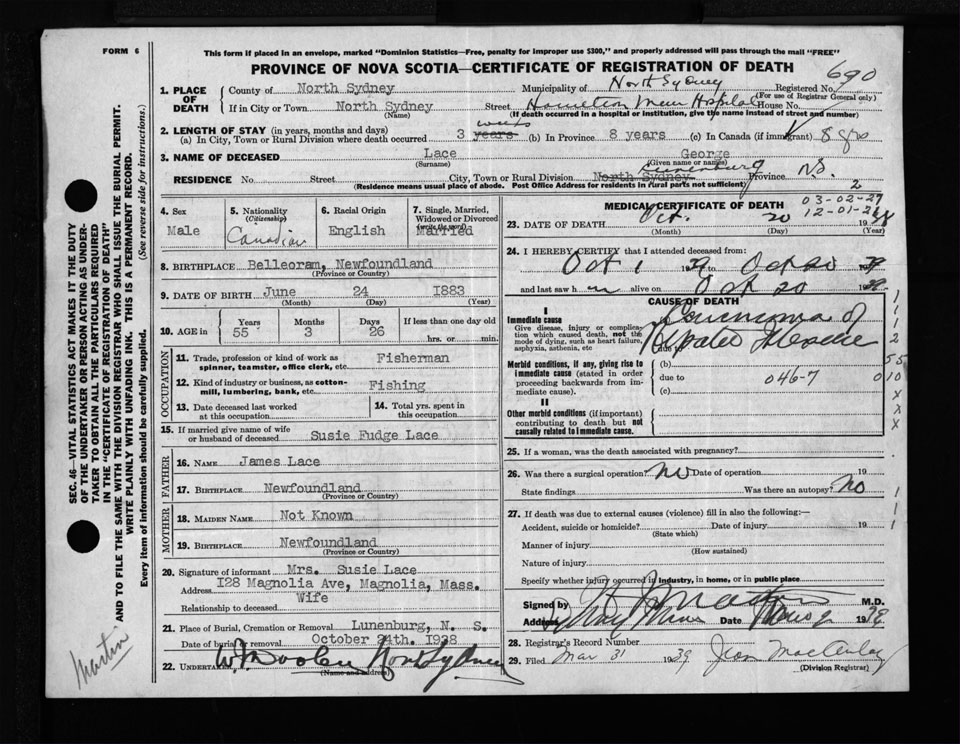 FORM 6
This form if placed in an envelope, marked "Dominion Statistics—Free, penalty for improper use $300," and properly addressed will pass through the mail "FREE"
PROVINCE OF NOVA SCOTIA—CERTIFICATE OF REGISTRATION OF DEATH
690
1. PLACE OF DEATH
County of North Sydney Municipality of North Sydney Registered No.
(For use of Registrar General only)
If in City or Town North Sydney Street Hamilton Mem Hospital House No.
(Name) (If death occurred in a hospital or institution, give the name instead of street and number)
2. LENGTH OF STAY (in years, months and days)
weeks
(a) In City, Town or Rural Division where death occurred 3 years (b) In Province 8 years (c) In Canada (if immigrant) 8 yrs
3. NAME OF DECEASED Lace George
(Surname) (Given name or names)
Lunenburg
RESIDENCE No. Street City, Town or Rural Division North Sydney Province N.S.
(Residence means usual place of abode. Post Office Address for residents in rural parts not sufficient) 2
4. Sex
Male
5. Nationality
(Citizenship)
Canadian
6. Racial Origin
English
7. Single, Married, Widowed or Divorced
(write the word)
Married
8. BIRTHPLACE Belleoram, Newfoundland
(Province or Country)
9. DATE OF BIRTH June 24 1883
(Month) (Day) (Year)
10. AGE in Years Months Days If less than one day
55 3 26 hrs. or min.
OCCUPATION
11. Trade, profession or kind of work as spinner, teamster, office clerk, etc. Fisherman
12. Kind of industry or business, as cotton-mill, lumbering, bank, etc. Fishing
13. Date deceased last worked at this occupation
14. Total yrs. spent in this occupation
15. If married give name of wife or husband of deceased Susie Fudge Lace
FATHER
16. NAME James Lace
17. BIRTHPLACE Newfoundland
(Province or Country)
MOTHER
18. MAIDEN NAME Not Known
19. BIRTHPLACE Newfoundland
(Province or Country)
20. Signature of informant Mrs. Susie Lace
Address 128 Magnolia Ave, Magnolia, Mass.
Relationship to deceased Wife
21. Place of Burial, Cremation or Removal Lunenburg, N. S.
Date of burial or removal October 24th. 1938
22. UNDERTAKER North Sydney
(Name and address)
MEDICAL CERTIFICATE OF DEATH
03-02-27
23. DATE OF DEATH Oct. 20 19
(Month) (Day) (Year)
24. I HEREBY CERTIFY that I attended deceased from:
Oct 1 to Oct 20
and last saw h alive on Oct 20 19
CAUSE OF DEATH
I
Immediate cause
Give disease, injury or complication which caused death, not the mode of dying, such as heart failure, asphyxia, asthenia, etc
Carcinoma of
due to
Morbid conditions, if any, giving rise to immediate cause (stated in order proceeding backwards from immediate cause).
(b)
due to 046-7
(c)
II
Other morbid conditions (if important) contributing to death but not causally related to immediate cause.
25. If a woman, was the death associated with pregnancy?
26. Was there a surgical operation? No Date of operation 19
State findings Was there an autopsy? No
27. If death was due to external causes (violence) fill in also the following:—
Accident, suicide or homicide? Date of injury 19
(State which)
Manner of injury
(How sustained)
Nature of injury
Specify whether injury occurred in industry, in home, or in public place
Signed by M.D.
Address Date 19
28. Registrar's Record Number
29. Filed Mar 31 1939
(Division Registrar)
SEC. 46—VITAL STATISTICS ACT MAKES IT THE DUTY OF THE UNDERTAKER OR PERSON ACTING AS UNDERTAKER TO OBTAIN ALL THE PARTICULARS REQUIRED IN THE "CERTIFICATE OF REGISTRATION OF DEATH" AND TO FILE THE SAME WITH THE DIVISION REGISTRAR WHO SHALL ISSUE THE BURIAL PERMIT.
WRITE PLAINLY WITH UNFADING INK. THIS IS A PERMANENT RECORD.
Every item of information should be carefully supplied. (See reverse side for instructions.)
Martin